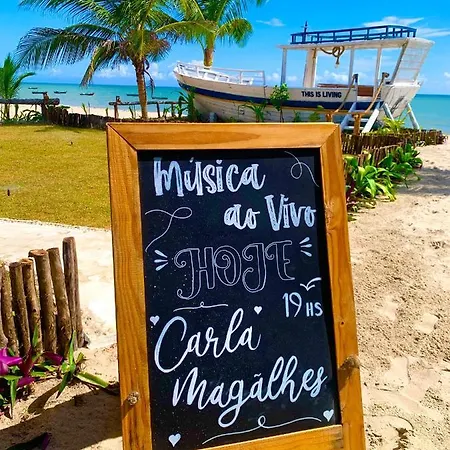 THIS IS LIVING
Música
ao Vivo
HOJE
19 HS
Carla
Magãlhes